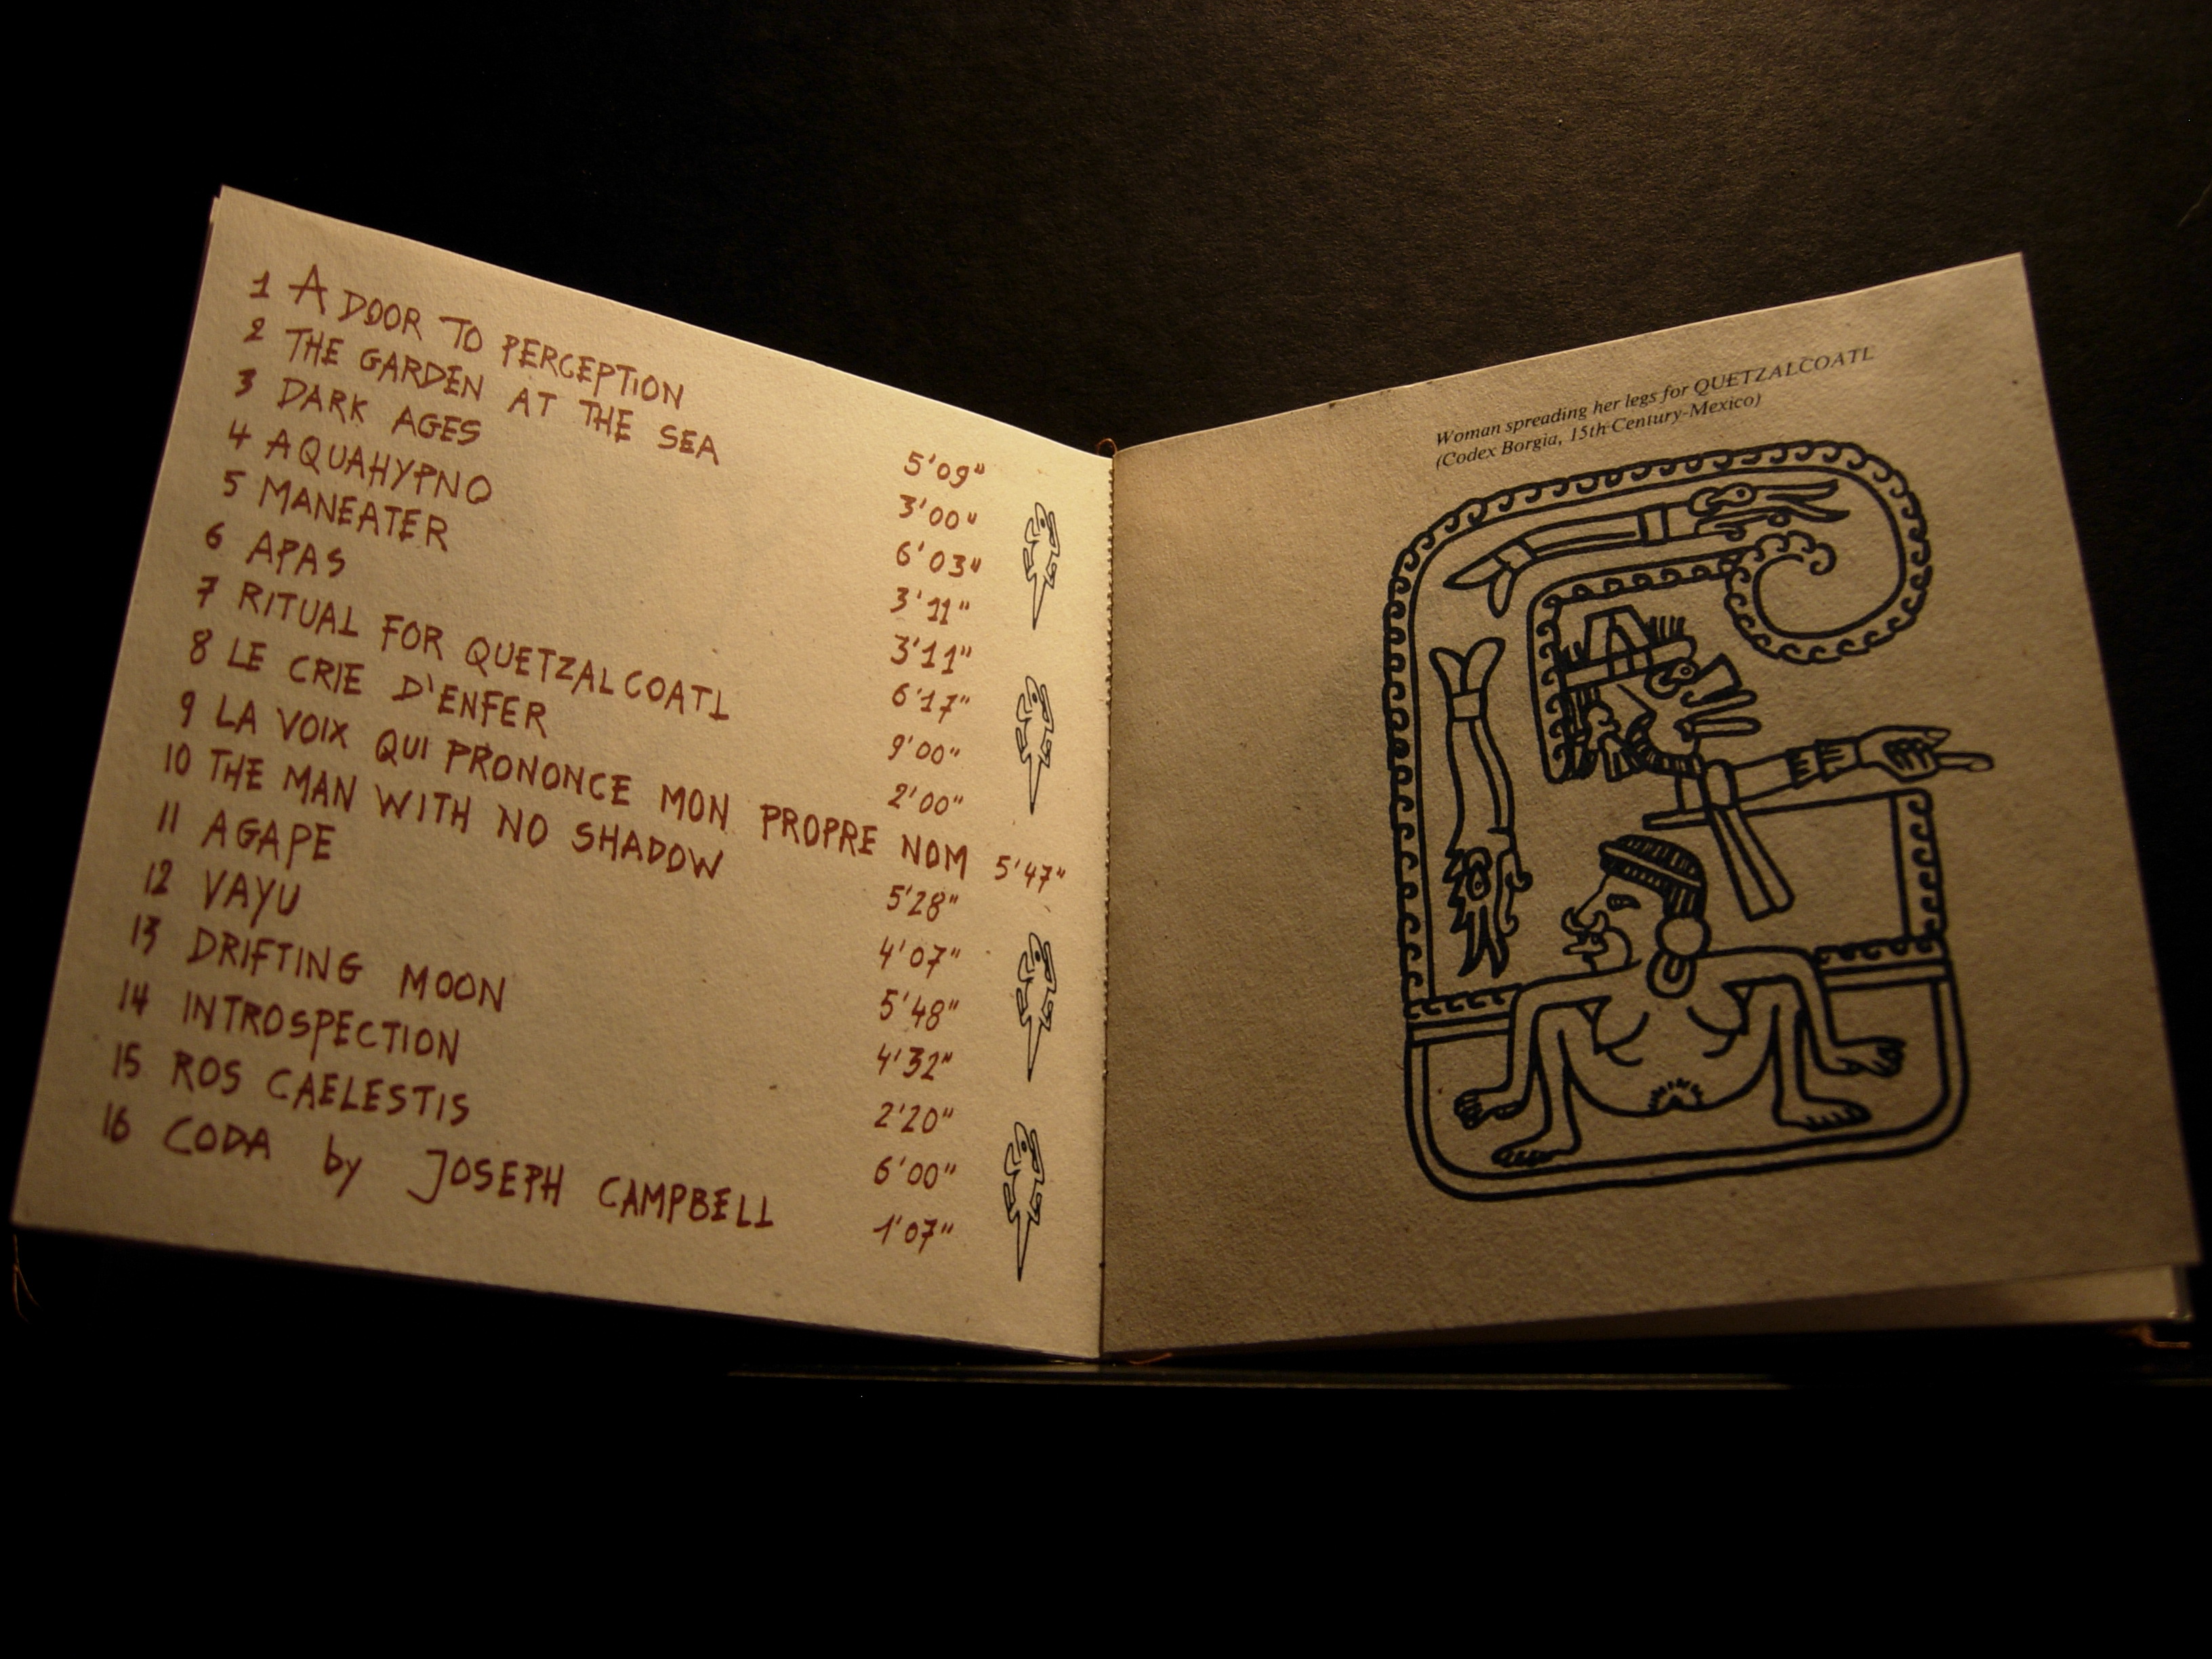 1 A DOOR TO PERCEPTION 5'09"
2 THE GARDEN AT THE SEA 3'00"
3 DARK AGES 6'03"
4 AQUAHYPNO 3'11"
5 MANEATER 3'11"
6 APAS 6'17"
7 RITUAL FOR QUETZALCOATL 9'00"
8 LE CRIE D'ENFER 2'00"
9 LA VOIX QUI PRONONCE MON PROPRE NOM 5'47"
10 THE MAN WITH NO SHADOW 5'28"
11 AGAPE 4'07"
12 VAYU 5'48"
13 DRIFTING MOON 4'32"
14 INTROSPECTION 2'20"
15 ROS CAELESTIS 6'00"
16 CODA by JOSEPH CAMPBELL 1'07"
Woman spreading her legs for QUETZALCOATL
(Codex Borgia, 15th Century-Mexico)